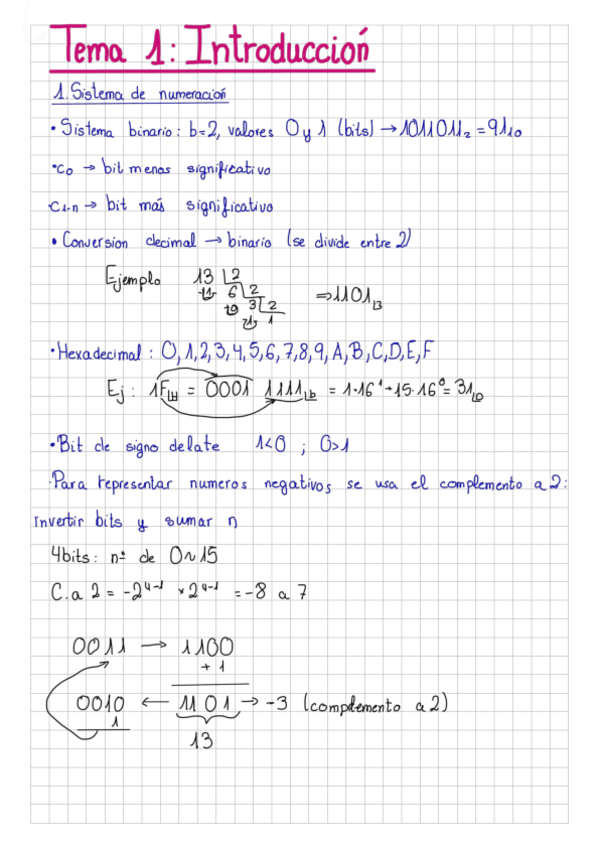 Tema 1: Introducción
1. Sistema de numeración
• Sistema binario: b=2, valores 0 y 1 (bits) → 1011011₂ = 91₁₀
• C₀ → bit menos significativo
C₁₋ₙ → bit más significativo
• Conversion decimal → binario (se divide entre 2)
Ejemplo 13 2
-11- 6 2 ⇒ 1101
3 2
1
• Hexadecimal: 0, 1, 2, 3, 4, 5, 6, 7, 8, 9, A, B, C, D, E, F
Ej: 1F = 0001 1111 = 1·16¹+15·16⁰ = 31
• Bit de signo delate 1<0 ; 0>1
Para representar numeros negativos se usa el complemento a 2:
Invertir bits y sumar n
4bits: nº de 0~15
C.a 2 = -2⁴⁻¹ 2⁴⁻¹ = -8 a 7
0011 → 1100
+ 1
0010 ← 1101 → -3 (complemento a 2)
1
13